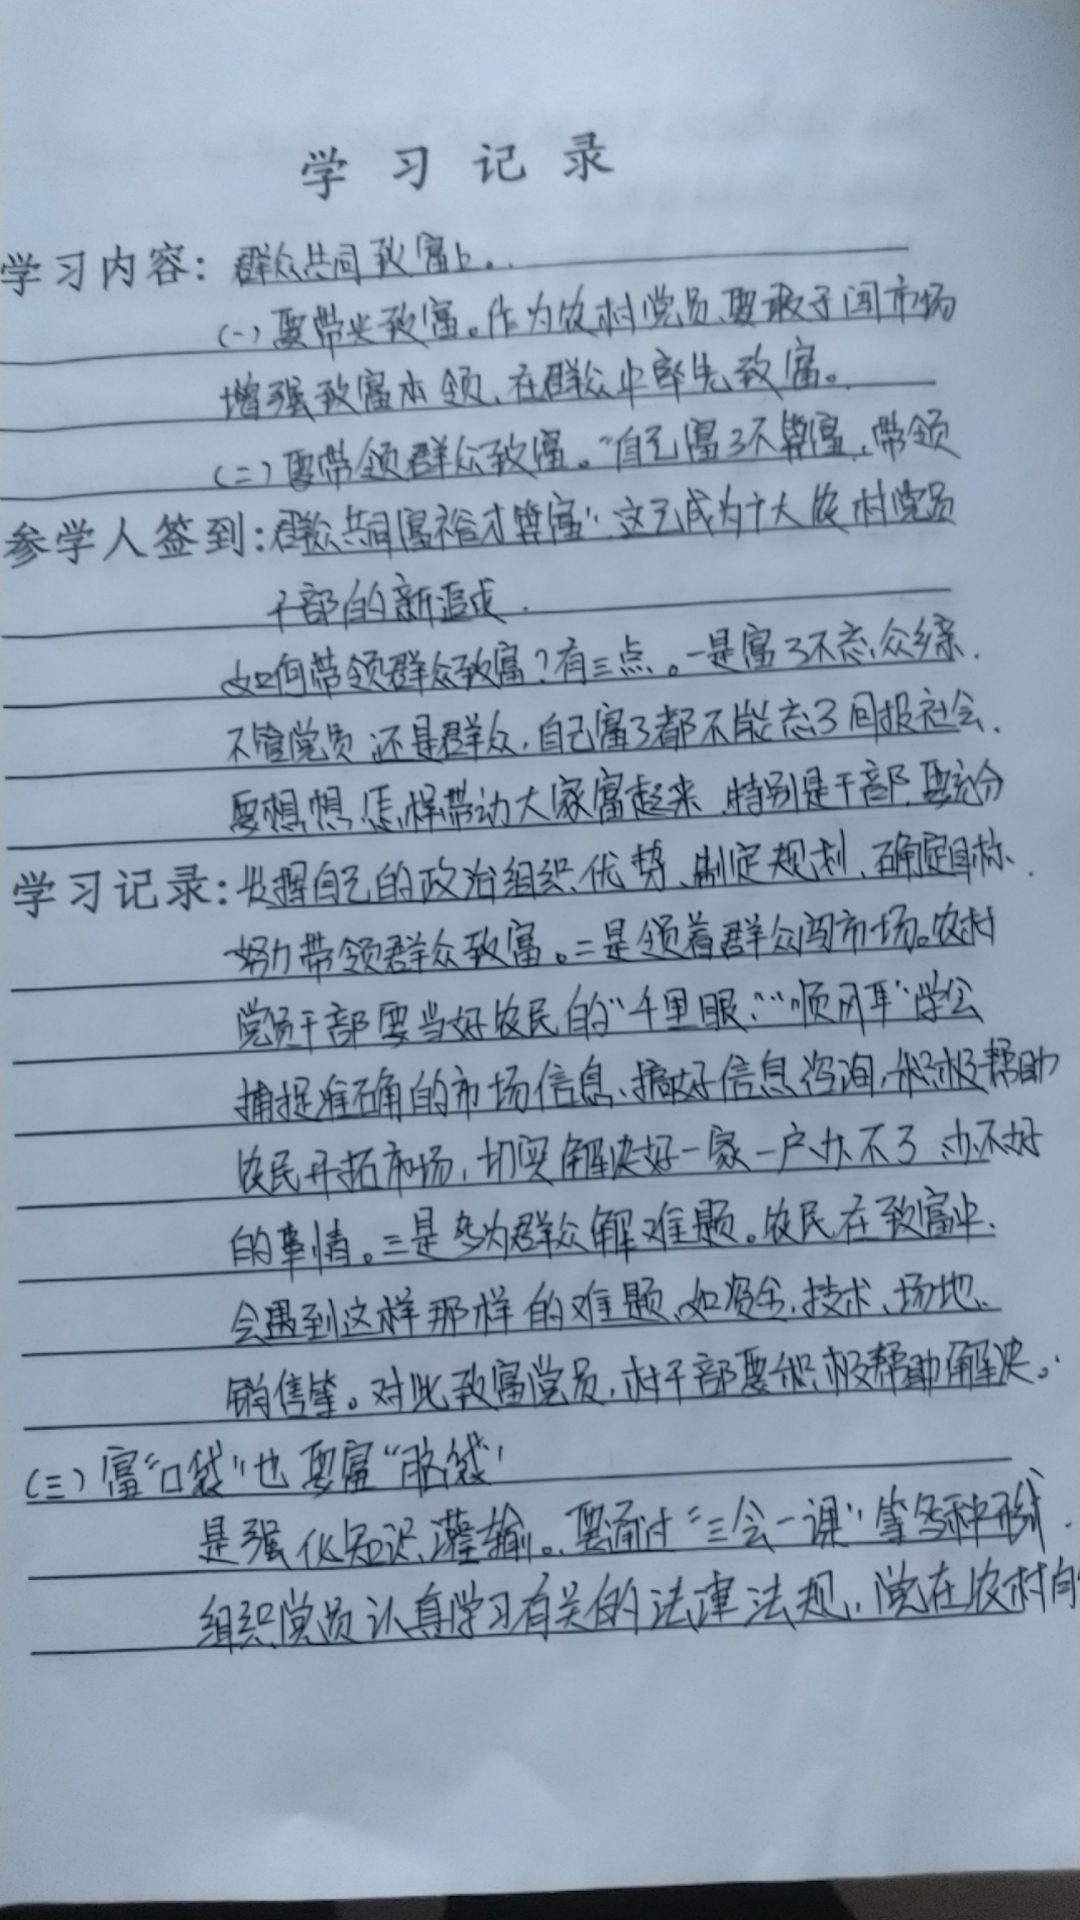 学习记录
学习内容：群众共同致富上。
（一）要带头致富。作为农村党员，要敢于闯市场
增强致富本领，在群众中率先致富。
（二）要带领群众致富。“自己富了不算富，带领
参学人签到：群众共同富裕才算富”这已成为广大农村党员
干部的新追求。
如何带领群众致富？有三点。一是富了不忘众乡亲.
不管党员还是群众，自己富了都不能忘了回报社会.
要想想怎样带动大家富起来，特别是干部，要充分
学习记录：发挥自己的政治组织优势、制定规划、确定目标.
努力带领群众致富。二是领着群众闯市场。农村
党员干部要当好农民的“千里眼”“顺风耳”学会
捕捉准确的市场信息、搞好信息咨询，积极帮助
农民开拓市场，切实解决好一家一户办不了办不好
的事情。三是多为群众解难题。农民在致富中.
会遇到这样那样的难题，如资金、技术、场地、
销售等。对此致富党员，村干部要积极帮助解决。
（三）富“口袋”也要富“脑袋”
是强化知识灌输。要通过“三会一课”等各种形式.
组织党员认真学习有关的法律法规，党在农村的